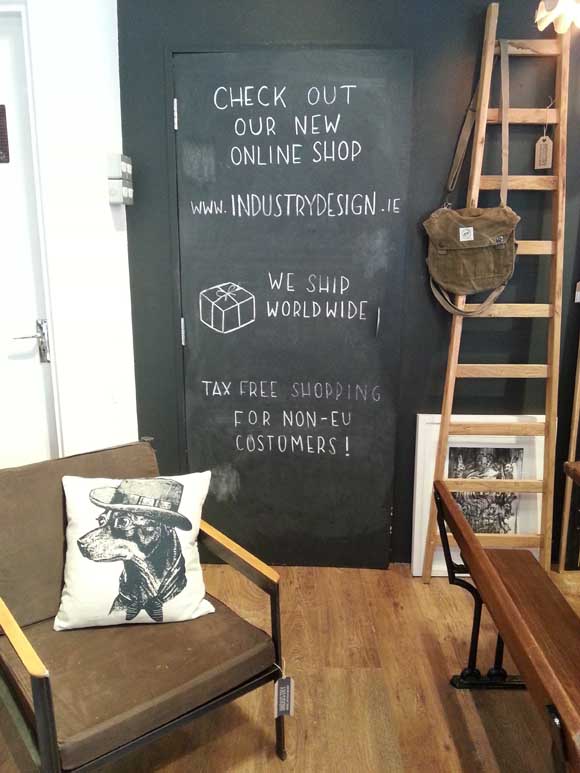 CHECK OUT
OUR NEW
ONLINE SHOP
WWW.INDUSTRYDESIGN.IE
WE SHIP
WORLDWIDE
TAX FREE SHOPPING
FOR NON-EU
COSTOMERS!
INDUSTRY